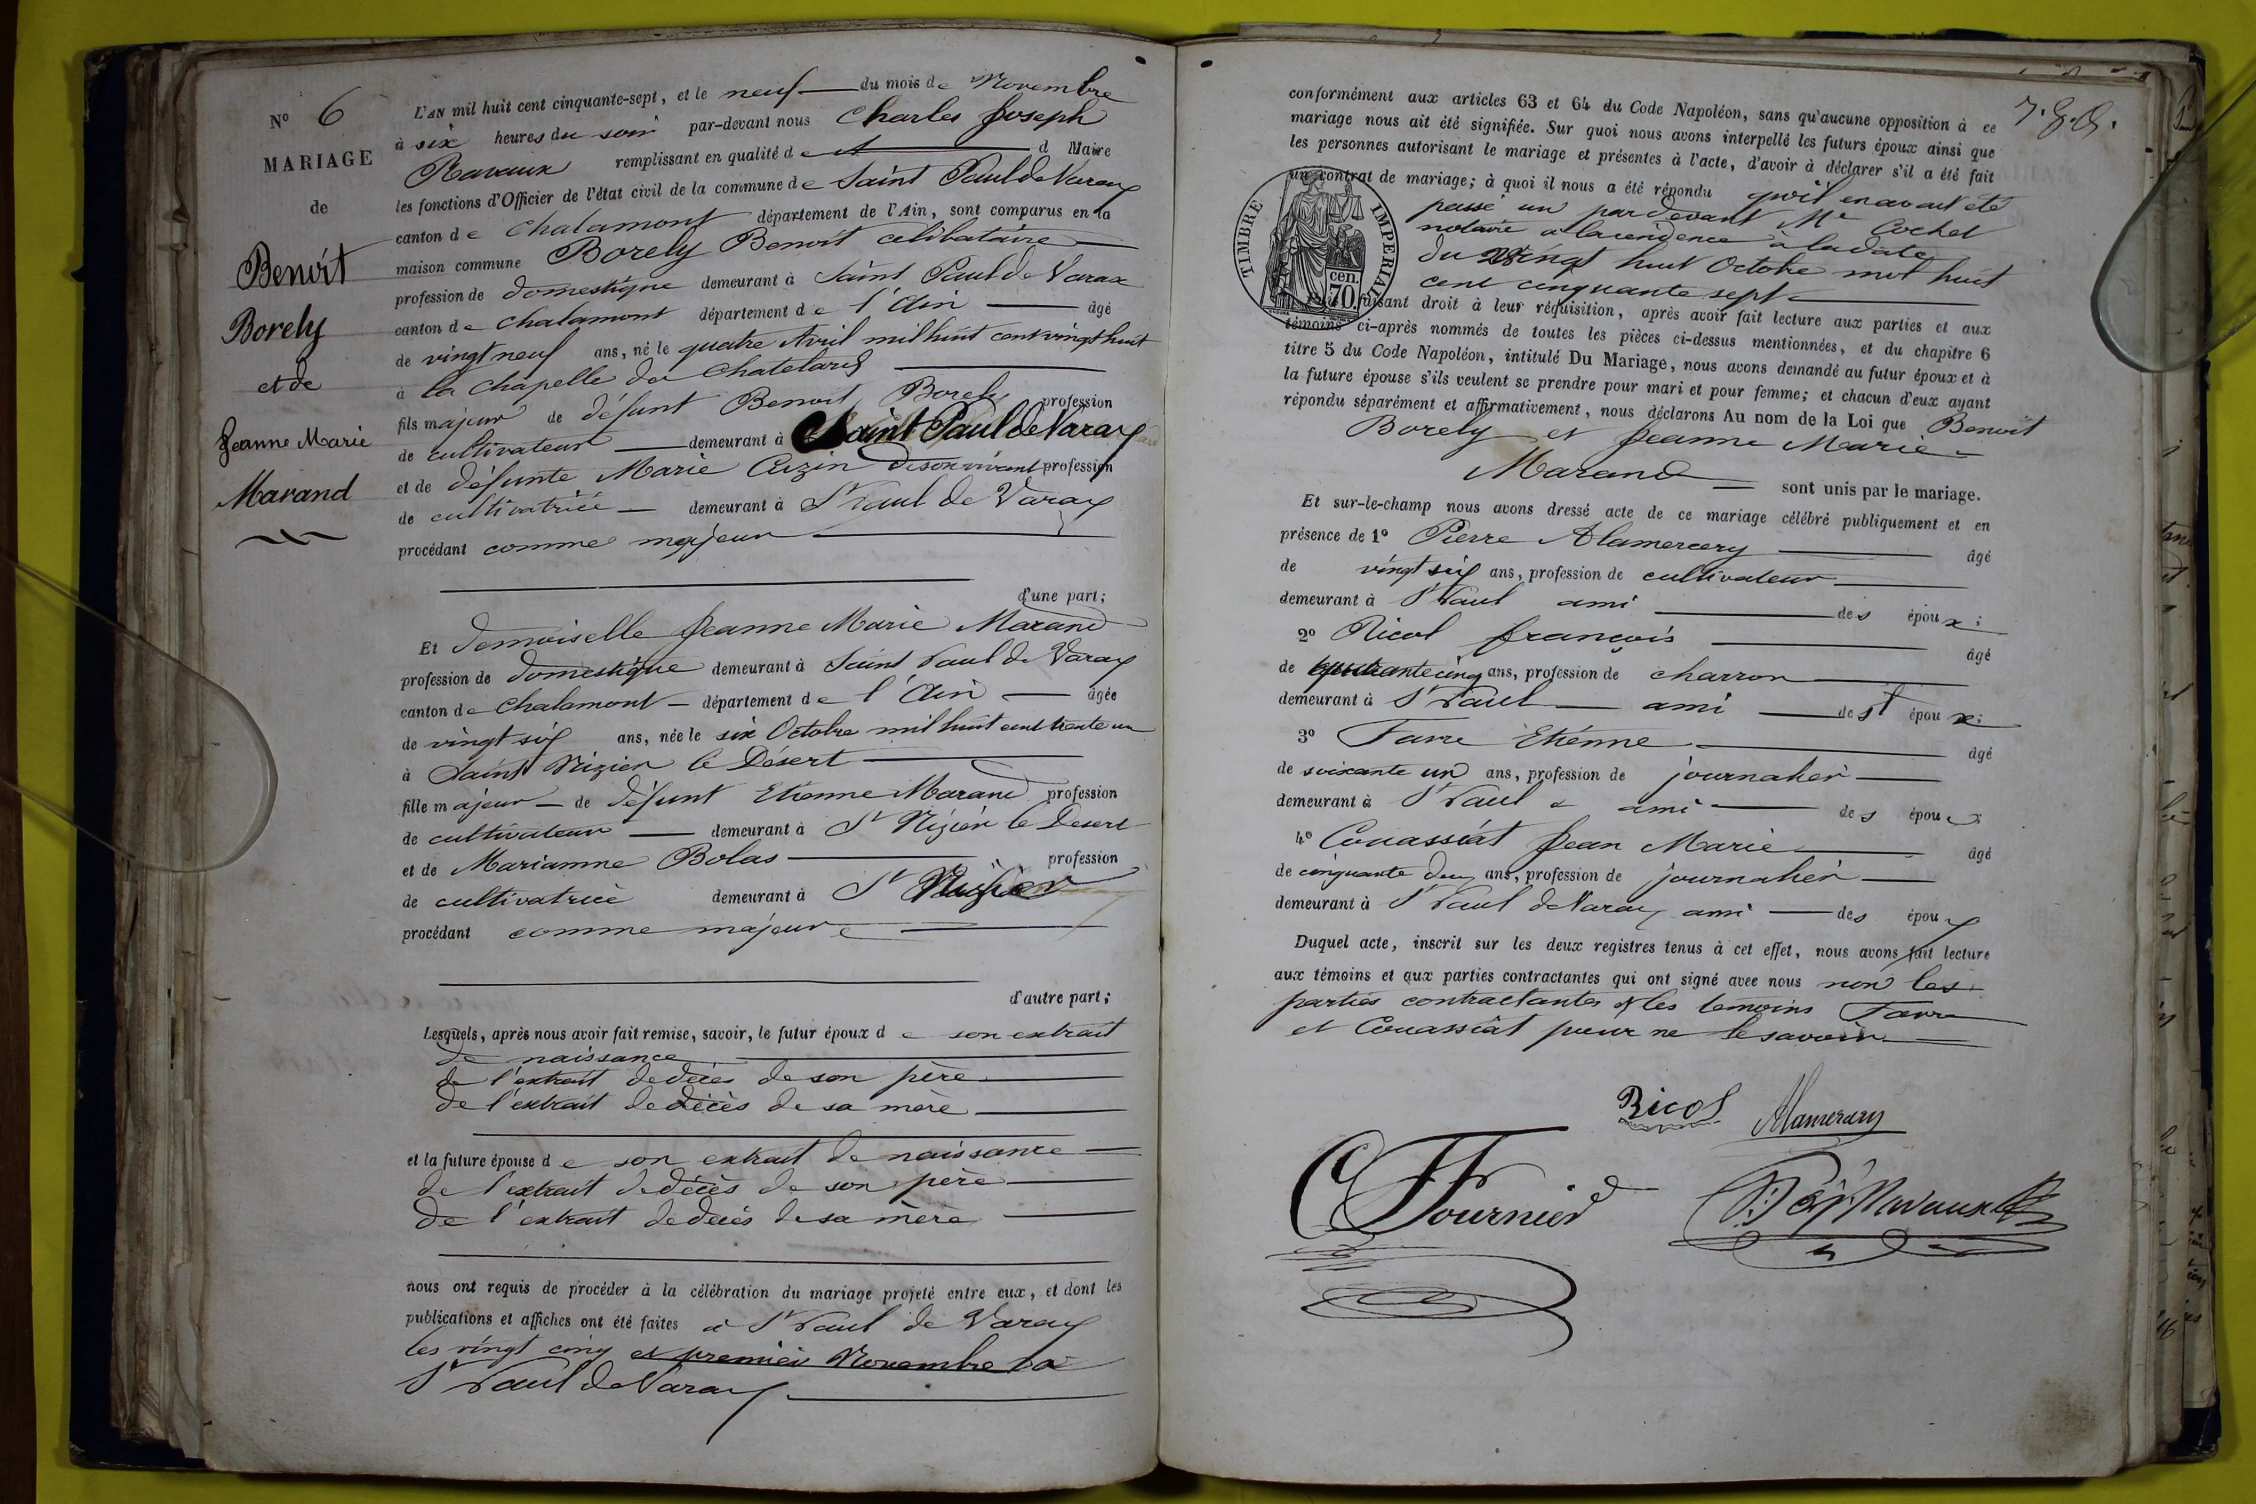 N° 6
MARIAGE
de
Benoit
Borely
et de
Jeanne Marie
Marand
L'AN mil huit cent cinquante-sept, et le neuf du mois de Novembre
à six heures du soir par-devant nous Charles Joseph
Ravaux remplissant en qualité de d Maire
les fonctions d'Officier de l'état civil de la commune de Saint Paul de Varax
canton de Chalamont département de l'Ain, sont comparus en la
maison commune Borely Benoit celibataire
profession de domestique demeurant à Saint Paul de Varax
canton de Chalamont département de l'Ain âgé
de vingt neuf ans, né le quatre Avril mil huit cent vingt huit
à la Chapelle du Chatelard
fils majeur de défunt Benoit Borely profession
de cultivateur demeurant à Saint Paul de Varax
et de défunte Marie Cuzin de son vivant profession
de cultivatrice demeurant à St Paul de Varax
procédant comme majeur
d'une part;
Et demoiselle Jeanne Marie Marand
profession de domestique demeurant à Saint Paul de Varax
canton de Chalamont département de l'Ain âgée
de vingt six ans, née le six Octobre mil huit cent trente un
à Saint Nizier le Désert
fille majeur de défunt Etienne Marand profession
de cultivateur demeurant à St Nizier le Desert
et de Marianne Bolas profession
de cultivatrice demeurant à St Nizier
procédant comme majeure
d'autre part;
Lesquels, après nous avoir fait remise, savoir, le futur époux de son extrait
de naissance
de l'extrait de décès de son père
de l'extrait de décès de sa mère
et la future épouse de son extrait de naissance
de l'extrait de décès de son père
de l'extrait de décès de sa mère
nous ont requis de procéder à la célébration du mariage projeté entre eux, et dont les
publications et affiches ont été faites à St Paul de Varax
les vingt cinq et premier Novembre à
St Paul de Varax
conformément aux articles 63 et 64 du Code Napoléon, sans qu'aucune opposition à ce
mariage nous ait été signifiée. Sur quoi nous avons interpellé les futurs époux ainsi que
les personnes autorisant le mariage et présentes à l'acte, d'avoir à déclarer s'il a été fait
un contrat de mariage; à quoi il nous a été répondu qu'il en avait été
passé un par devant Me Cochet
notaire a la residence à la date
du vingt huit Octobre mil huit
cent cinquante sept
TIMBRE IMPERIAL
cen. 70
faisant droit à leur réquisition, après avoir fait lecture aux parties et aux
témoins ci-après nommés de toutes les pièces ci-dessus mentionnées, et du chapitre 6
titre 5 du Code Napoléon, intitulé Du Mariage, nous avons demandé au futur époux et à
la future épouse s'ils veulent se prendre pour mari et pour femme; et chacun d'eux ayant
répondu séparément et affirmativement, nous déclarons Au nom de la Loi que Benoit
Borely et Jeanne Marie
Marand sont unis par le mariage.
Et sur-le-champ nous avons dressé acte de ce mariage célébré publiquement et en
présence de 1° Pierre Alamercery âgé
de vingt six ans, profession de cultivateur
demeurant à St Paul ami des époux;
2° Ricol françois âgé
de quarante cinq ans, profession de charron
demeurant à St Paul ami des époux;
3° Favre Etiénne âgé
de soixante un ans, profession de journalier
demeurant à St Paul ami des époux;
4° Couassiat Jean Marie âgé
de cinquante deux ans, profession de journalier
demeurant à St Paul de Varax ami des époux
Duquel acte, inscrit sur les deux registres tenus à cet effet, nous avons fait lecture
aux témoins et aux parties contractantes qui ont signé avec nous non les
parties contractantes et les temoins Favre
et Couassiat pour ne le savoir
Ricol Alamercery
Fournier Ravaux